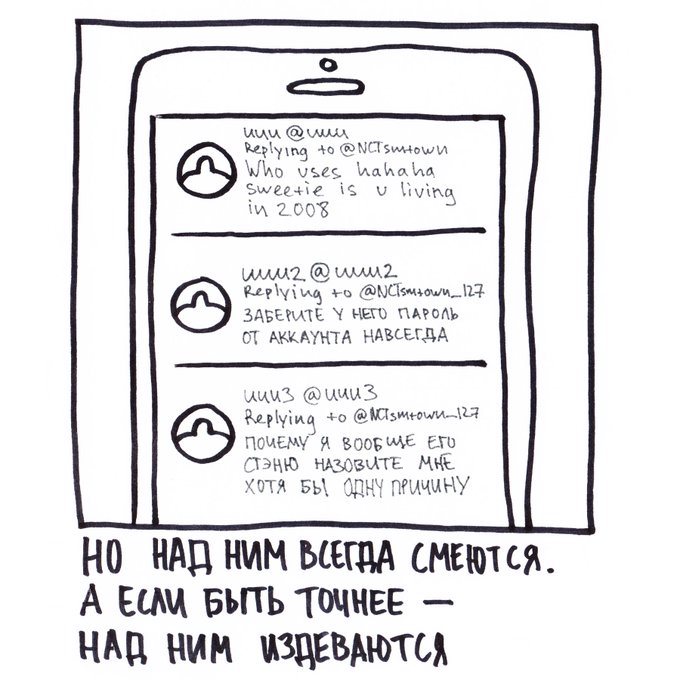 Replying to @NCTsmtown
Who uses hahaha
sweetie is u living
in 2008
Replying to @NCTsmtown_127
ЗАБЕРИТЕ У НЕГО ПАРОЛЬ
ОТ АККАУНТА НАВСЕГДА
Replying to @NCTsmtown_127
ПОЧЕМУ Я ВООБЩЕ ЕГО
СТЭНЮ НАЗОВИТЕ МНЕ
ХОТЯ БЫ ОДНУ ПРИЧИНУ
НО НАД НИМ ВСЕГДА СМЕЮТСЯ.
А ЕСЛИ БЫТЬ ТОЧНЕЕ —
НАД НИМ ИЗДЕВАЮТСЯ